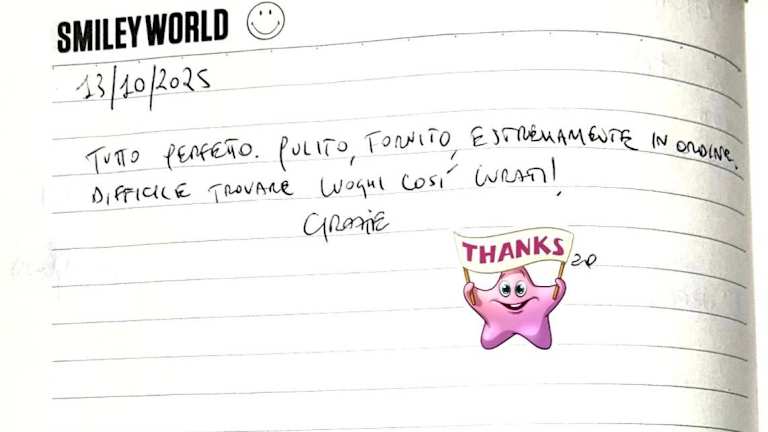 SMILEYWORLD
13/10/2025
TUTTO PERFETTO. PULITO, FORNITO, ESTREMAMENTE IN ORDINE.
DIFFICILE TROVARE LUOGHI COSÌ CURATI!
GRAZIE
THANKS